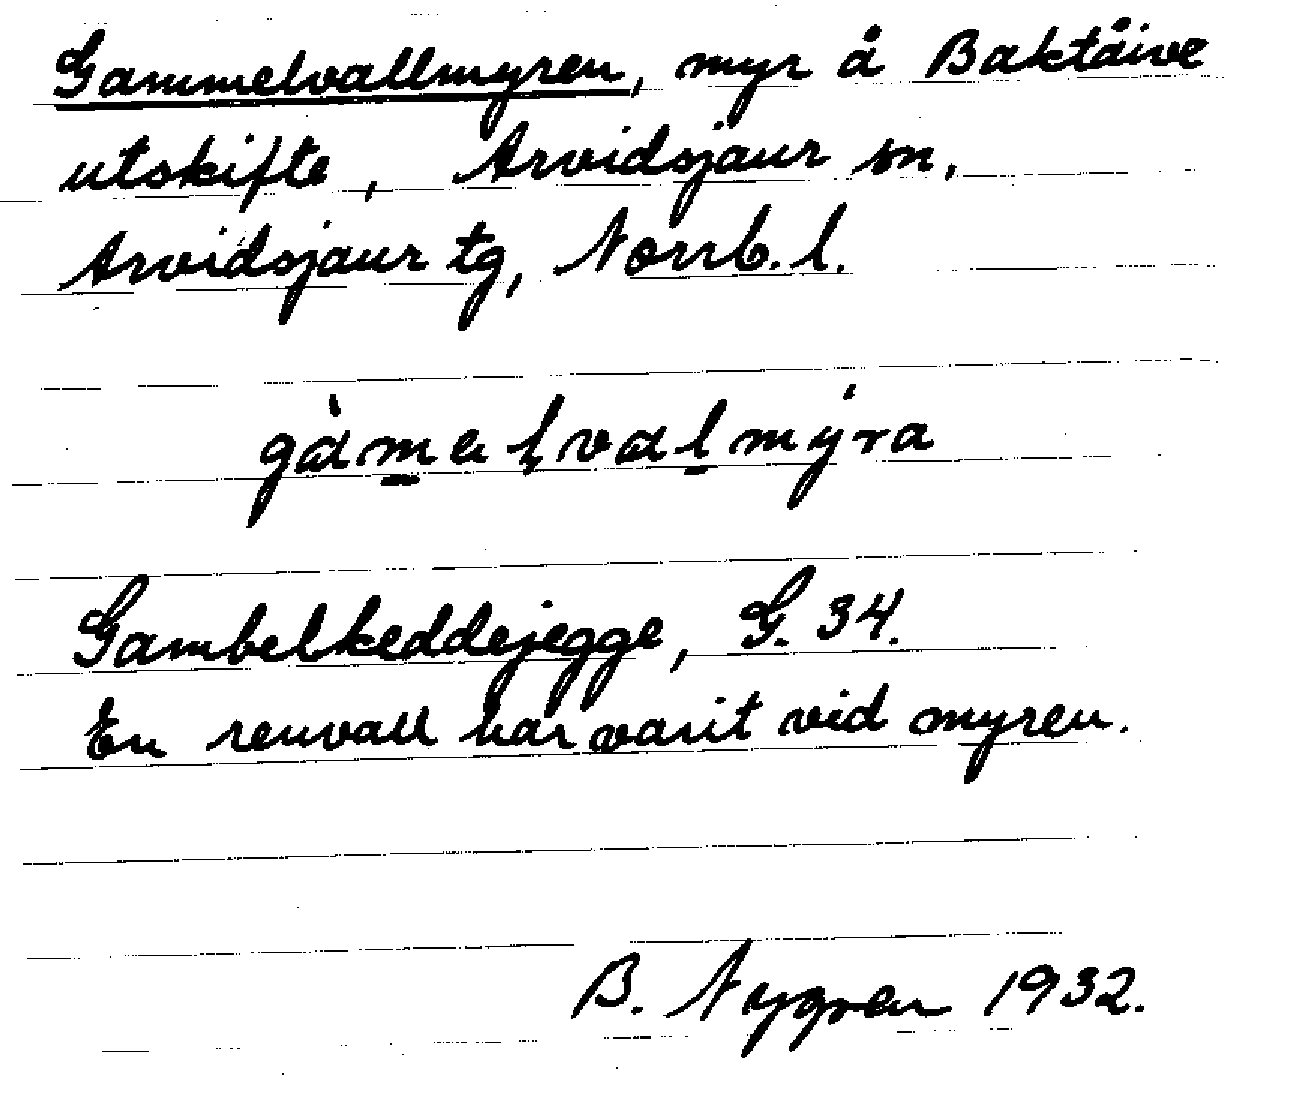 Gammelvallmyren, myr å Baktåive
utskifte, Arvidsjaur sn,
Arvidsjaur tg, Norrb. l.
gàmelvalmýra
Gambelkeddejegge, G. 34.
En renvall har varit vid myren.
B. Nygren 1932.